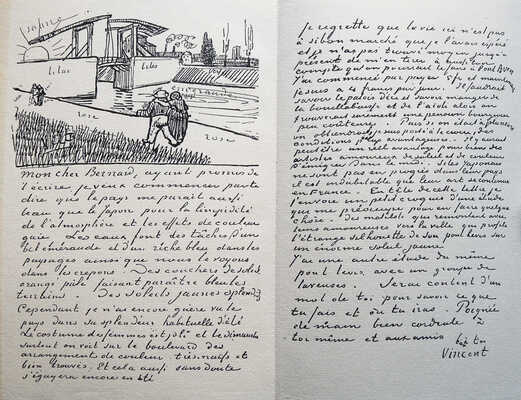 lilas
lilas
rose
rose
Mon cher Bernard, ayant promis de
t'écrire je veux commencer par te
dire que le pays me parait aussi
beau que le Japon pour la limpidité
de l'atmosphère et les effets de couleur
gaie. Les eaux font des taches d'un
bel émeraude et d'un riche bleu dans les
paysages ainsi que nous le voyons
dans les crepons. Des couchers de soleil
orangé pâle faisant paraître bleu les
terrains. Des soleils jaunes splendides
Cependant je n'ai encore guère vu le
pays dans sa splendeur habituelle d'été
Le costume des femmes est joli et le dimanche
surtout on voit sur le boulevard des
arrangements de couleur très naïfs et
bien trouvés. Et cela aussi sans doute
s'égayera encore en été
Je regrette que la vie ici n'est pas
à si bon marché que je l'avais espéré
et je n'ai pas trouvé moyen jusqu'à
présent de m'en tirer à
compte qu'on pourrait le faire à Pont Aven
J'ai commencé par payer 5 fr et maintenant
je suis à 4 francs par jour. Il faudrait
savoir le patois d'ici et savoir manger de
la bouillabaisse et de l'aïoli alors on
trouverait surement une pension bourgeoise
peu couteuse. Puis si on était à plusieurs
on obtiendrait suis porté à le croire, des
conditions plus avantageuses. Il y aurait
peut être un réel avantage pour bien des
artistes amoureux de soleil et de couleur
d'émigrer dans le midi. Si les Japonais
ne sont pas en progrès dans leur pays
il est indubitable que leur art se continue
en France. En tête de cette lettre je
t'envoie un petit croquis d'une étude
qui me préoccupe pour en faire quelque
chose. Des matelots qui remontent avec
leurs amoureuses vers la ville qui profile
l'étrange silhouette de son pont levis sur
un énorme soleil jaune
J'ai une autre étude du même
pont levis avec un groupe de
laveuses. Serai content d'un
mot de toi pour savoir ce que
tu fais et où tu iras. Poignée
de main bien cordiale à
toi même et aux amis
Vincent